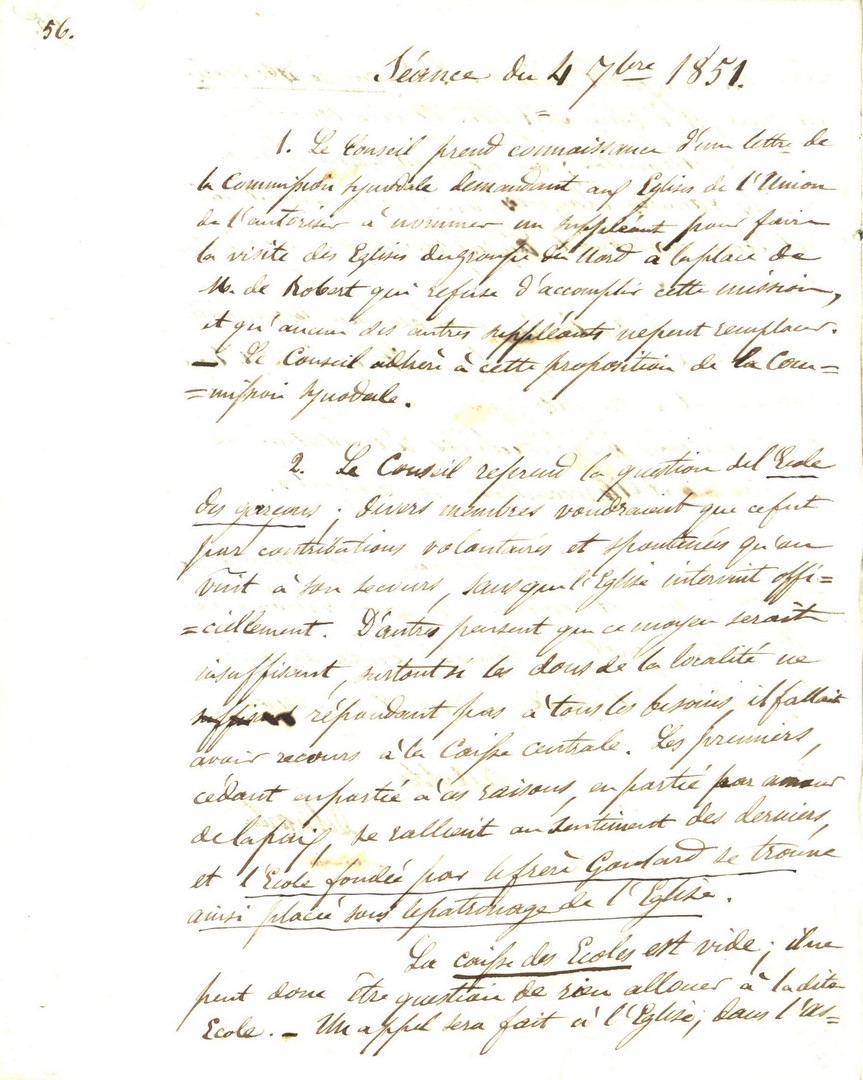 56.
Séance du 4 7bre 1851.
1. Le Conseil prend connaissance d'une lettre de
la Commission synodale demandant aux Eglises de l'Union
de l'autoriser à nommer un suppléant pour faire
la visite des Eglises du groupe du Nord à la place de
M. de Robert qui refuse d'accomplir cette mission,
et qu'aucun des autres suppléants ne peut remplacer.
— Le Conseil adhère à cette proposition de la Com=
=mission synodale.
2. Le Conseil reprend la question de l'Ecole
des garçons ; divers membres voudraient que ce fut
par contributions volontaires et spontanées qu'on
vînt à son secours, sans que l'Eglise intervint offi=
=ciellement. D'autres pensent que ce moyen serait
insuffisant, surtout si les dons de la localité ne
répondant pas à tous les besoins, il fallait
avoir recours à la Caisse centrale. Les premiers,
cédant en partie à ces raisons, en partie par amour
de la paix, se rallient au sentiment des derniers,
et l'Ecole fondée par le frère Goulard se trouve
ainsi placée sous le patronage de l'Eglise.
La caisse des Ecoles est vide ; il ne
peut donc être question de rien allouer à la dite
Ecole. — Un appel sera fait à l'Eglise, dans l'as=